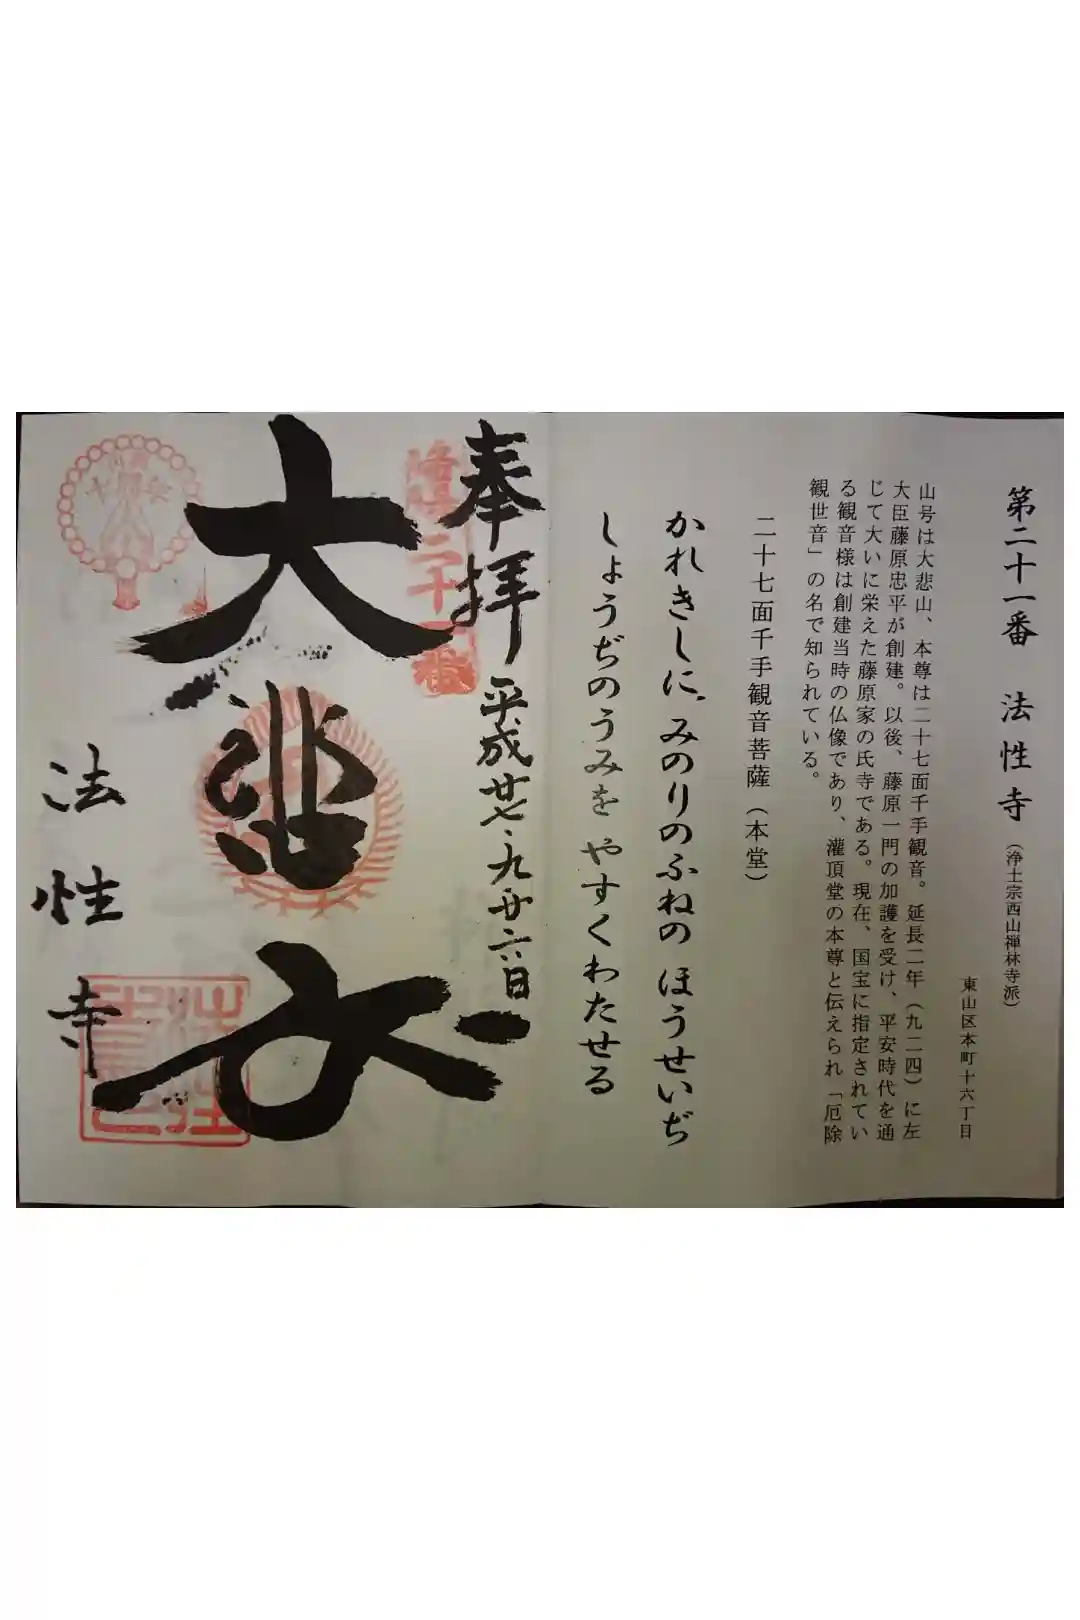 第二十一番 法性寺(浄土宗西山禅林寺派)
東山区本町十六丁目
山号は大悲山、本尊は二十七面千手観音。延長二年(九二四)に左
大臣藤原忠平が創建。以後、藤原一門の加護を受け、平安時代を通
じて大いに栄えた藤原家の氏寺である。現在、国宝に指定されてい
る観音様は創建当時の仏像であり、灌頂堂の本尊と伝えられ「厄除
観世音」の名で知られている。
二十七面千手観音菩薩(本堂)
かれきしに みのりのふねの ほうせいぢ
しょうぢのうみを やすくわたせる
奉拝 平成廿七・九・廿六日
洛陽二十一番
大悲
法性寺